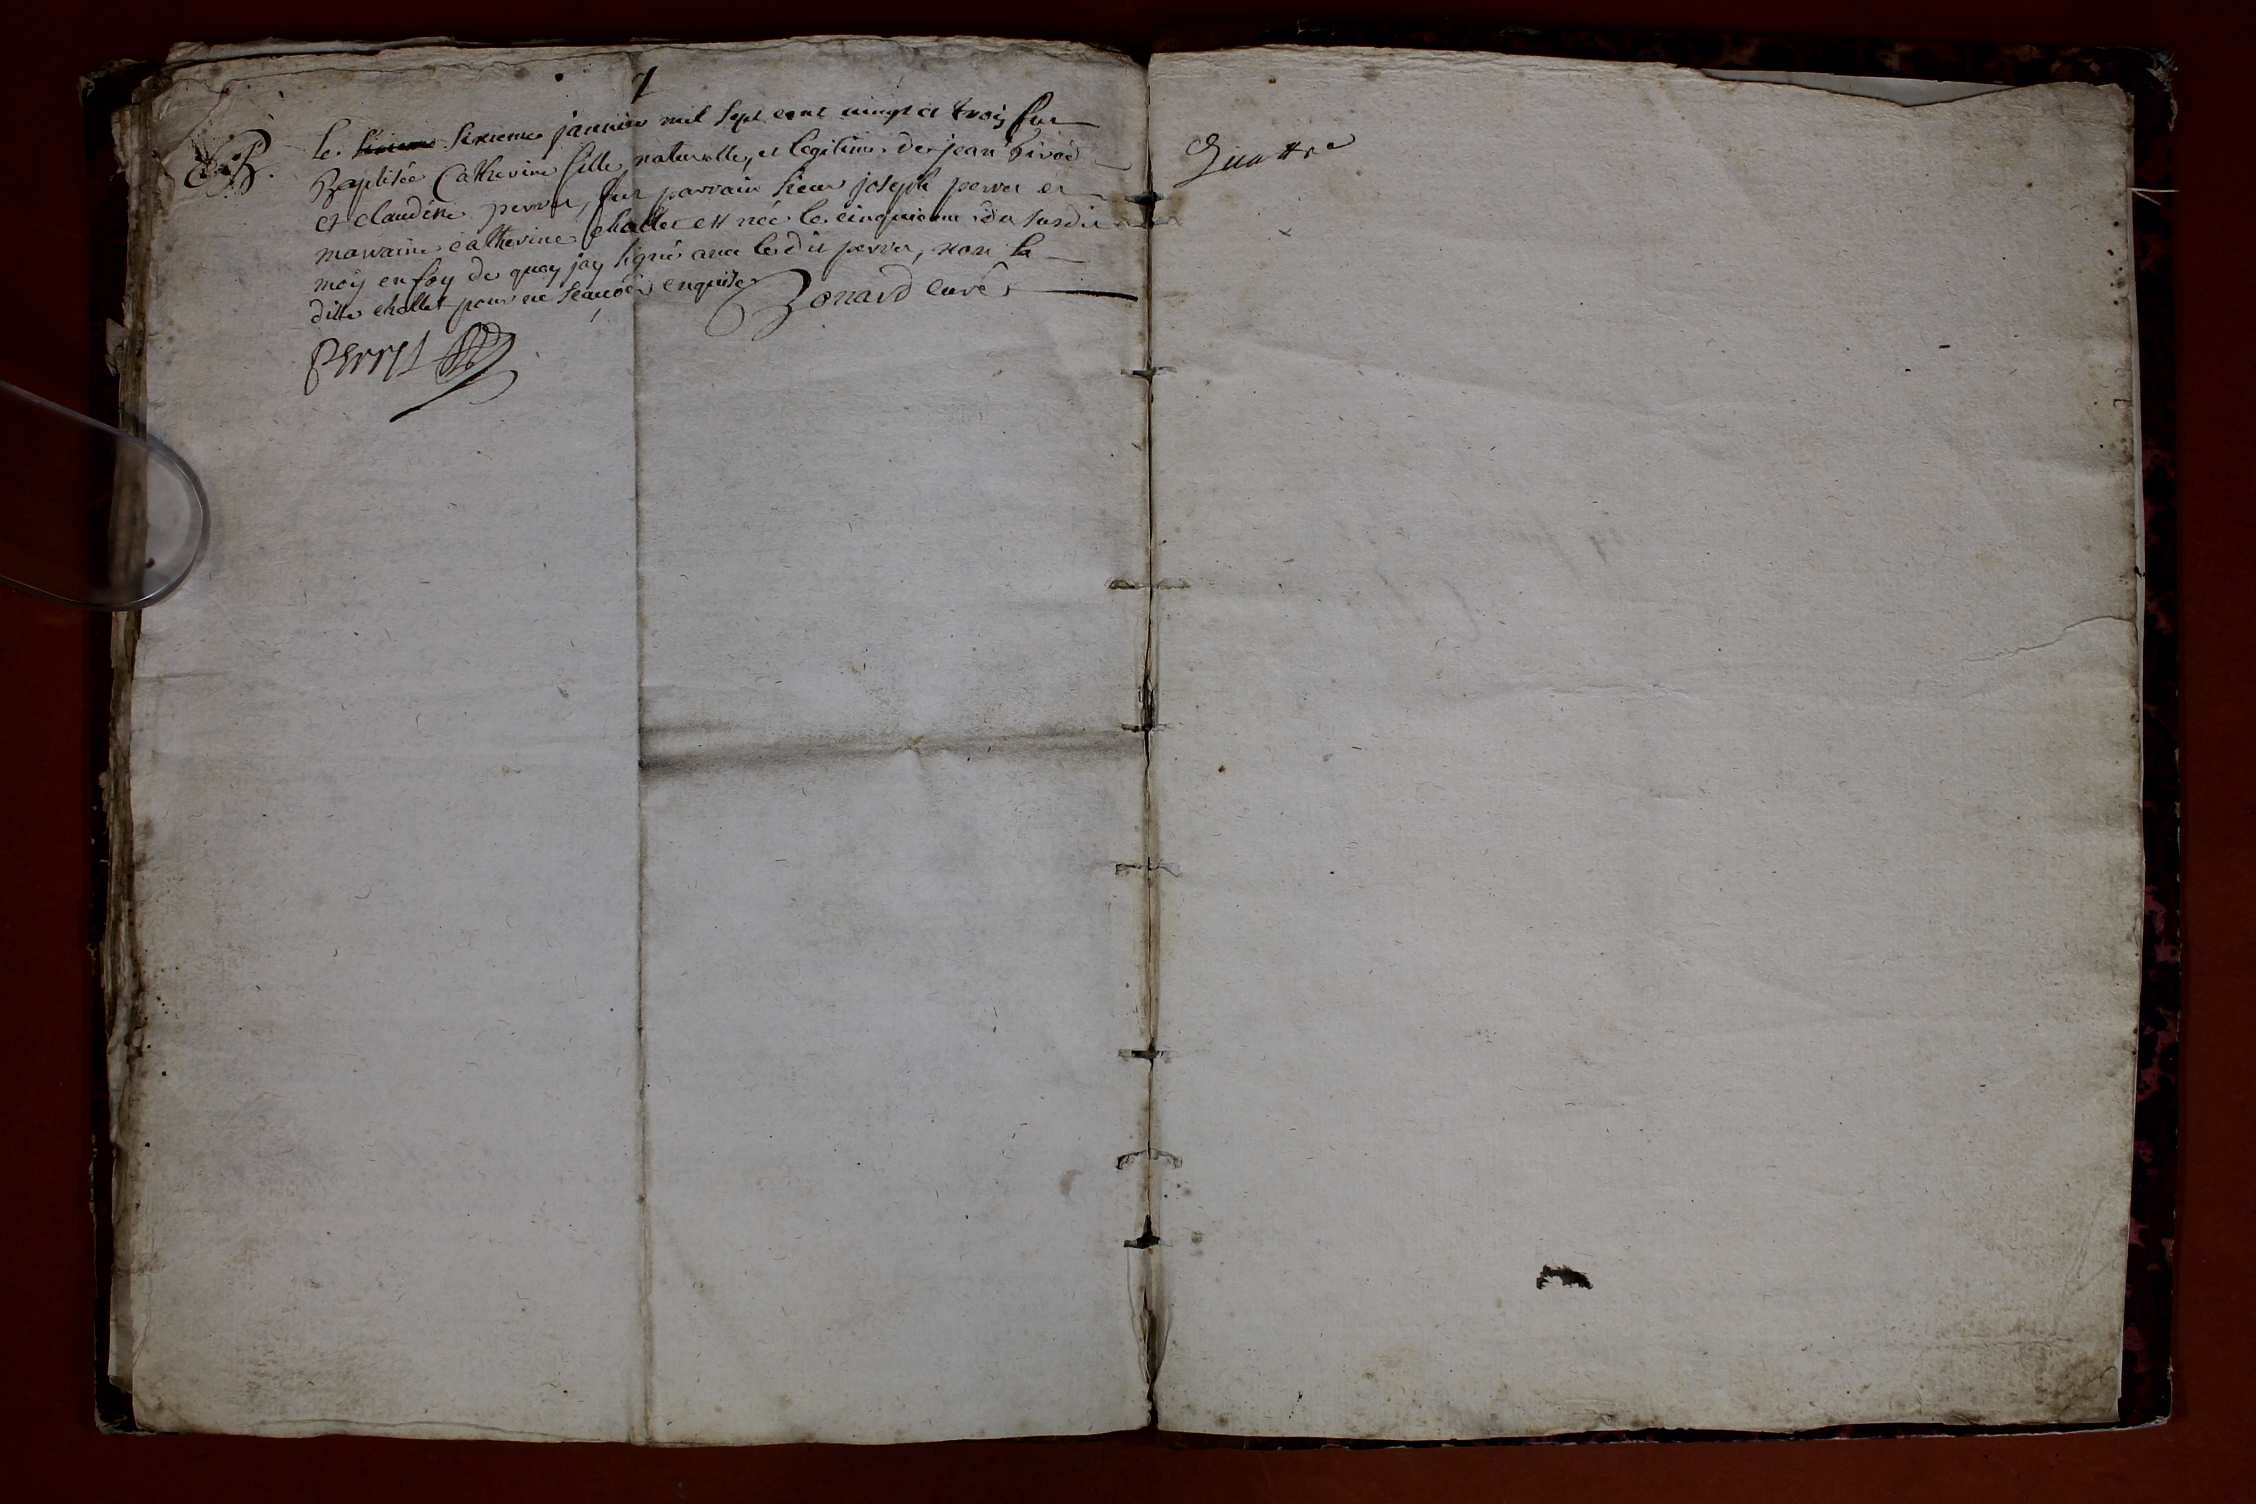 B. le sixieme janvier mil sept cent vingt et trois fut
Baptisée Catherine fille naturelle, et legitime de jean
et claudine perret, fut parrain sieur joseph perret et
marraine catherine chollet est née le cinquieme du susdit
mois en foy de quoy jay signé avec le dit perret, non la
ditte chollet pour ne scavoir enquise curé
PERRET
quattre